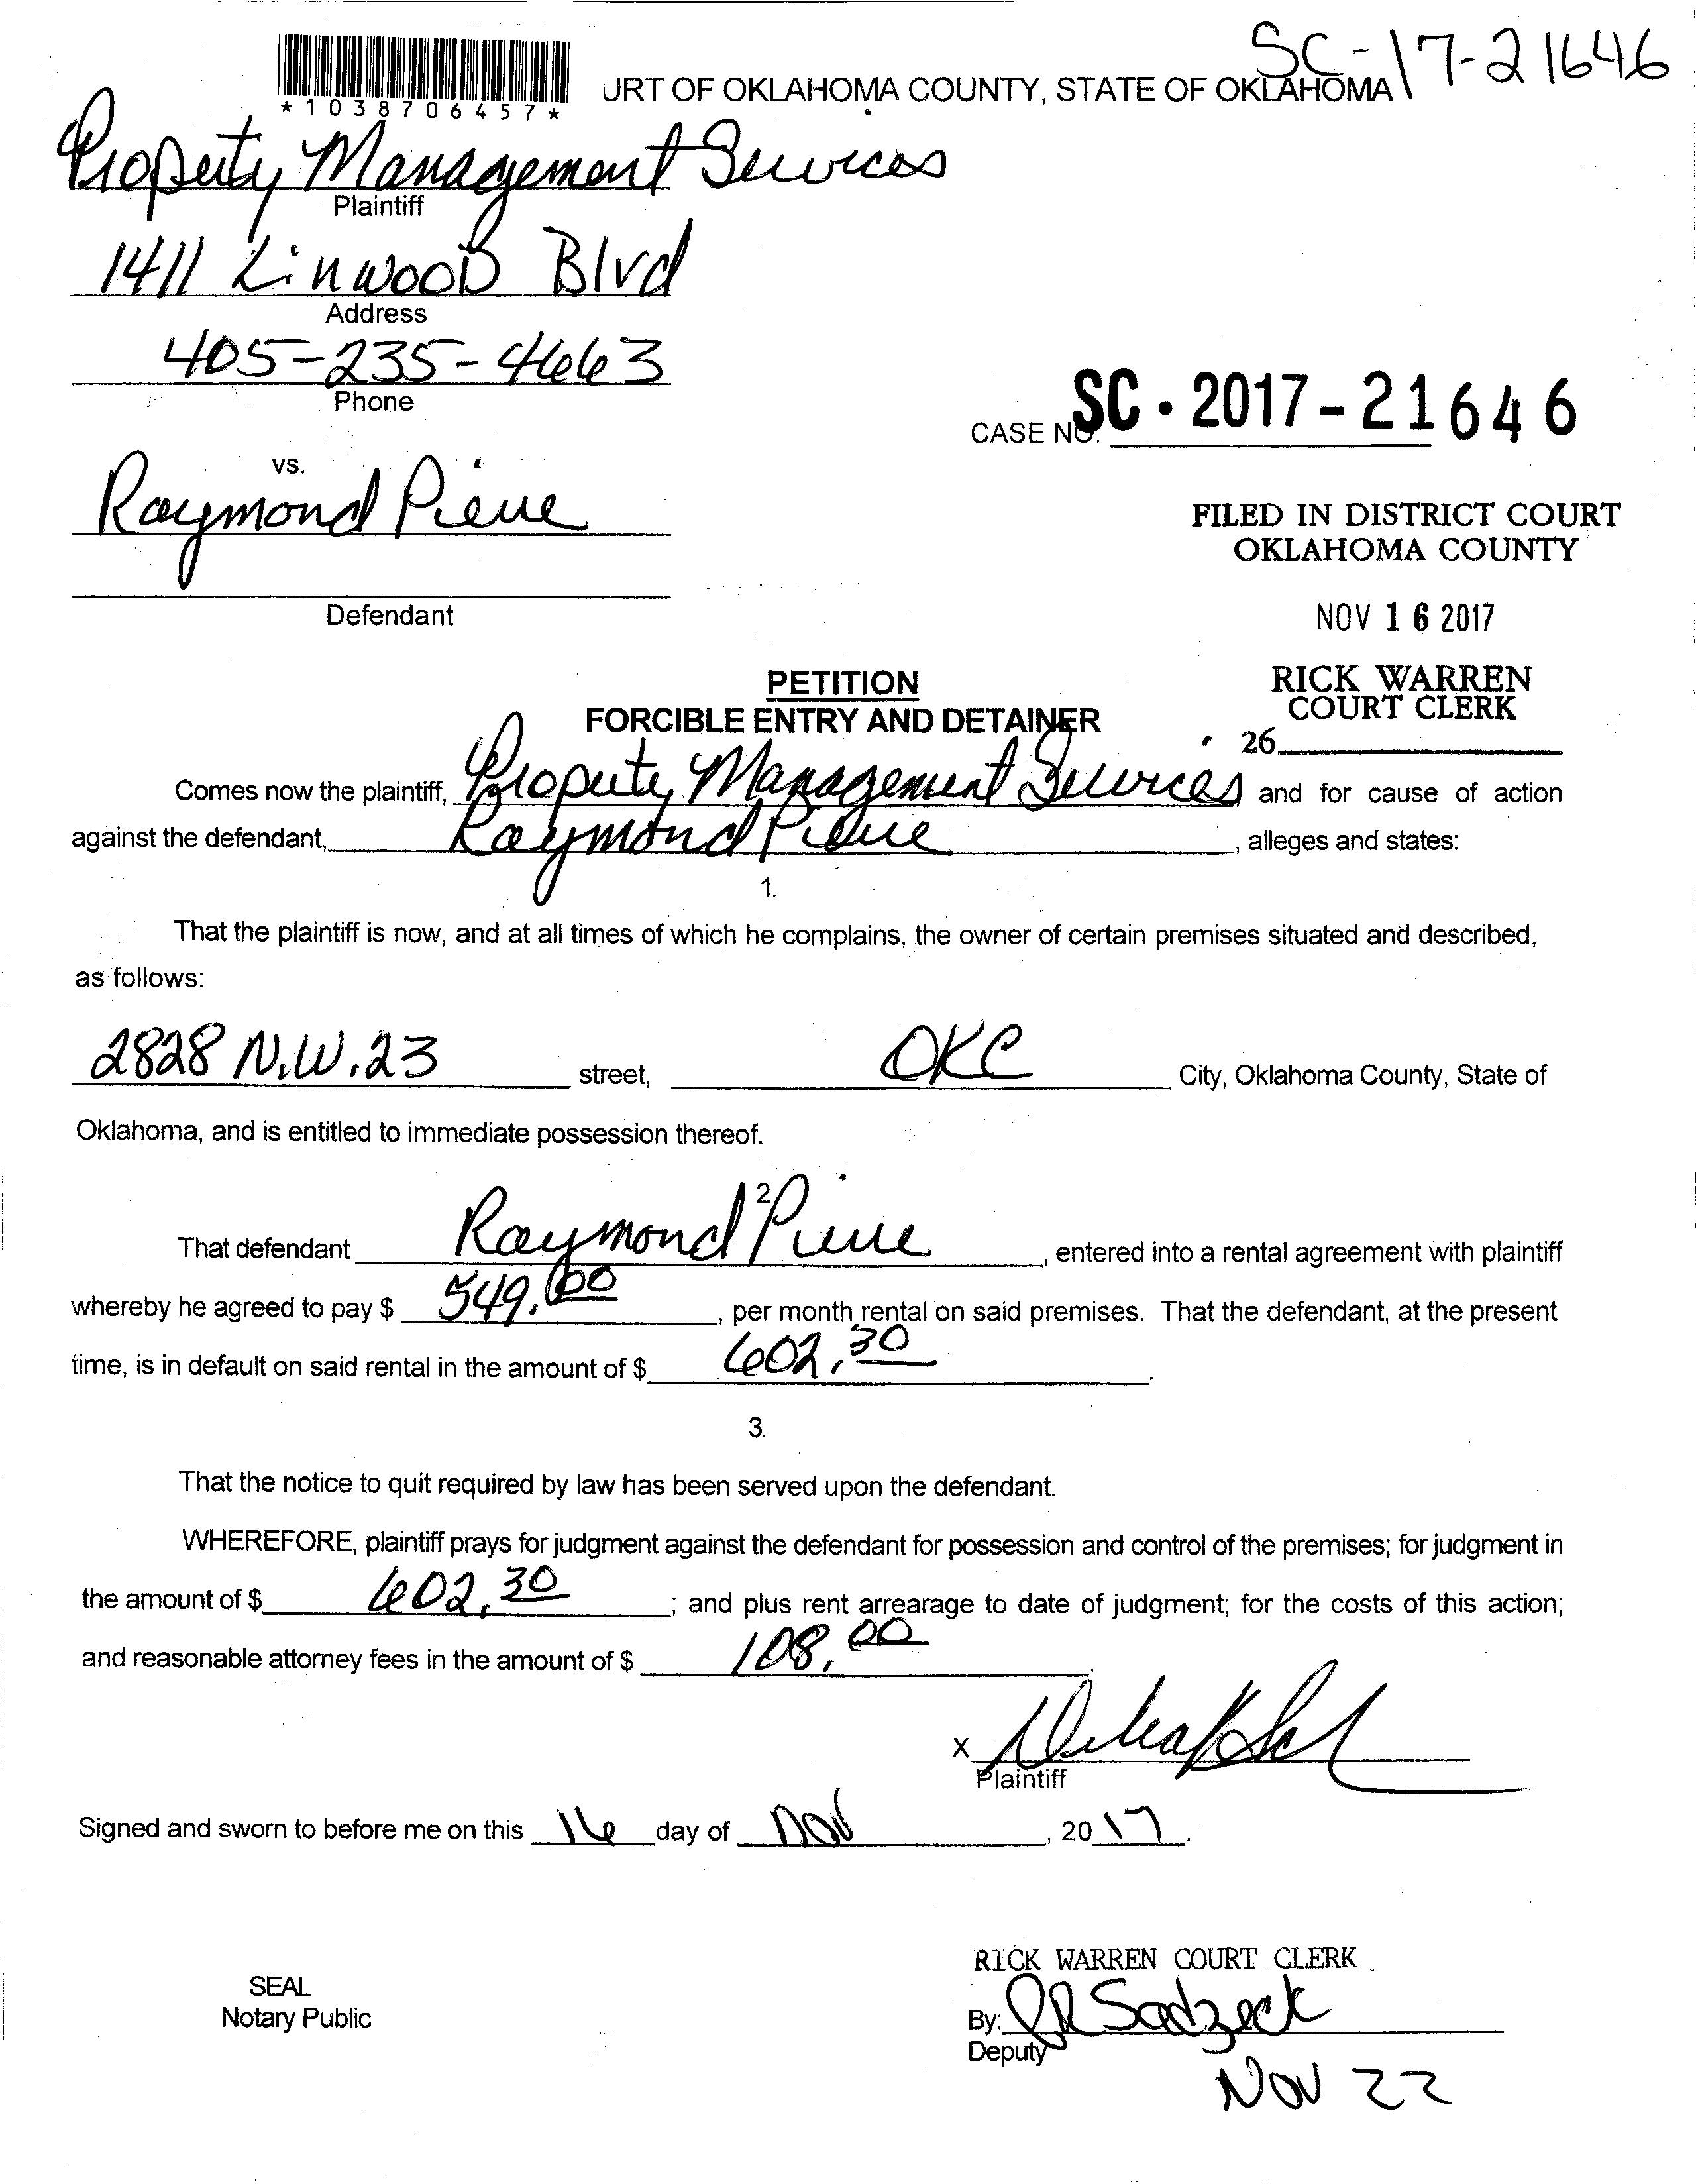 SC-17-21646
*1038706457*
URT OF OKLAHOMA COUNTY, STATE OF OKLAHOMA
Property Management Services
Plaintiff
1411 Linwood Blvd
Address
405-235-4663
Phone
CASE NO. SC - 2017 - 21646
vs.
Raymond Pierre
FILED IN DISTRICT COURT
OKLAHOMA COUNTY
Defendant
NOV 16 2017
PETITION
FORCIBLE ENTRY AND DETAINER
RICK WARREN
COURT CLERK
26
Comes now the plaintiff, Property Management Services and for cause of action
against the defendant, Raymond Pierre, alleges and states:
1.
That the plaintiff is now, and at all times of which he complains, the owner of certain premises situated and described,
as follows:
2828 N.W. 23 street, OKC City, Oklahoma County, State of
Oklahoma, and is entitled to immediate possession thereof.
2
That defendant Raymond Pierre, entered into a rental agreement with plaintiff
whereby he agreed to pay $ 549.00, per month rental on said premises. That the defendant, at the present
time, is in default on said rental in the amount of $ 602.30.
3.
That the notice to quit required by law has been served upon the defendant.
WHEREFORE, plaintiff prays for judgment against the defendant for possession and control of the premises; for judgment in
the amount of $ 602.30; and plus rent arrearage to date of judgment; for the costs of this action;
and reasonable attorney fees in the amount of $ 108.00.
X
Plaintiff
Signed and sworn to before me on this 16 day of Nov, 2017.
RICK WARREN COURT CLERK
SEAL
Notary Public
By:
Deputy
Nov 22